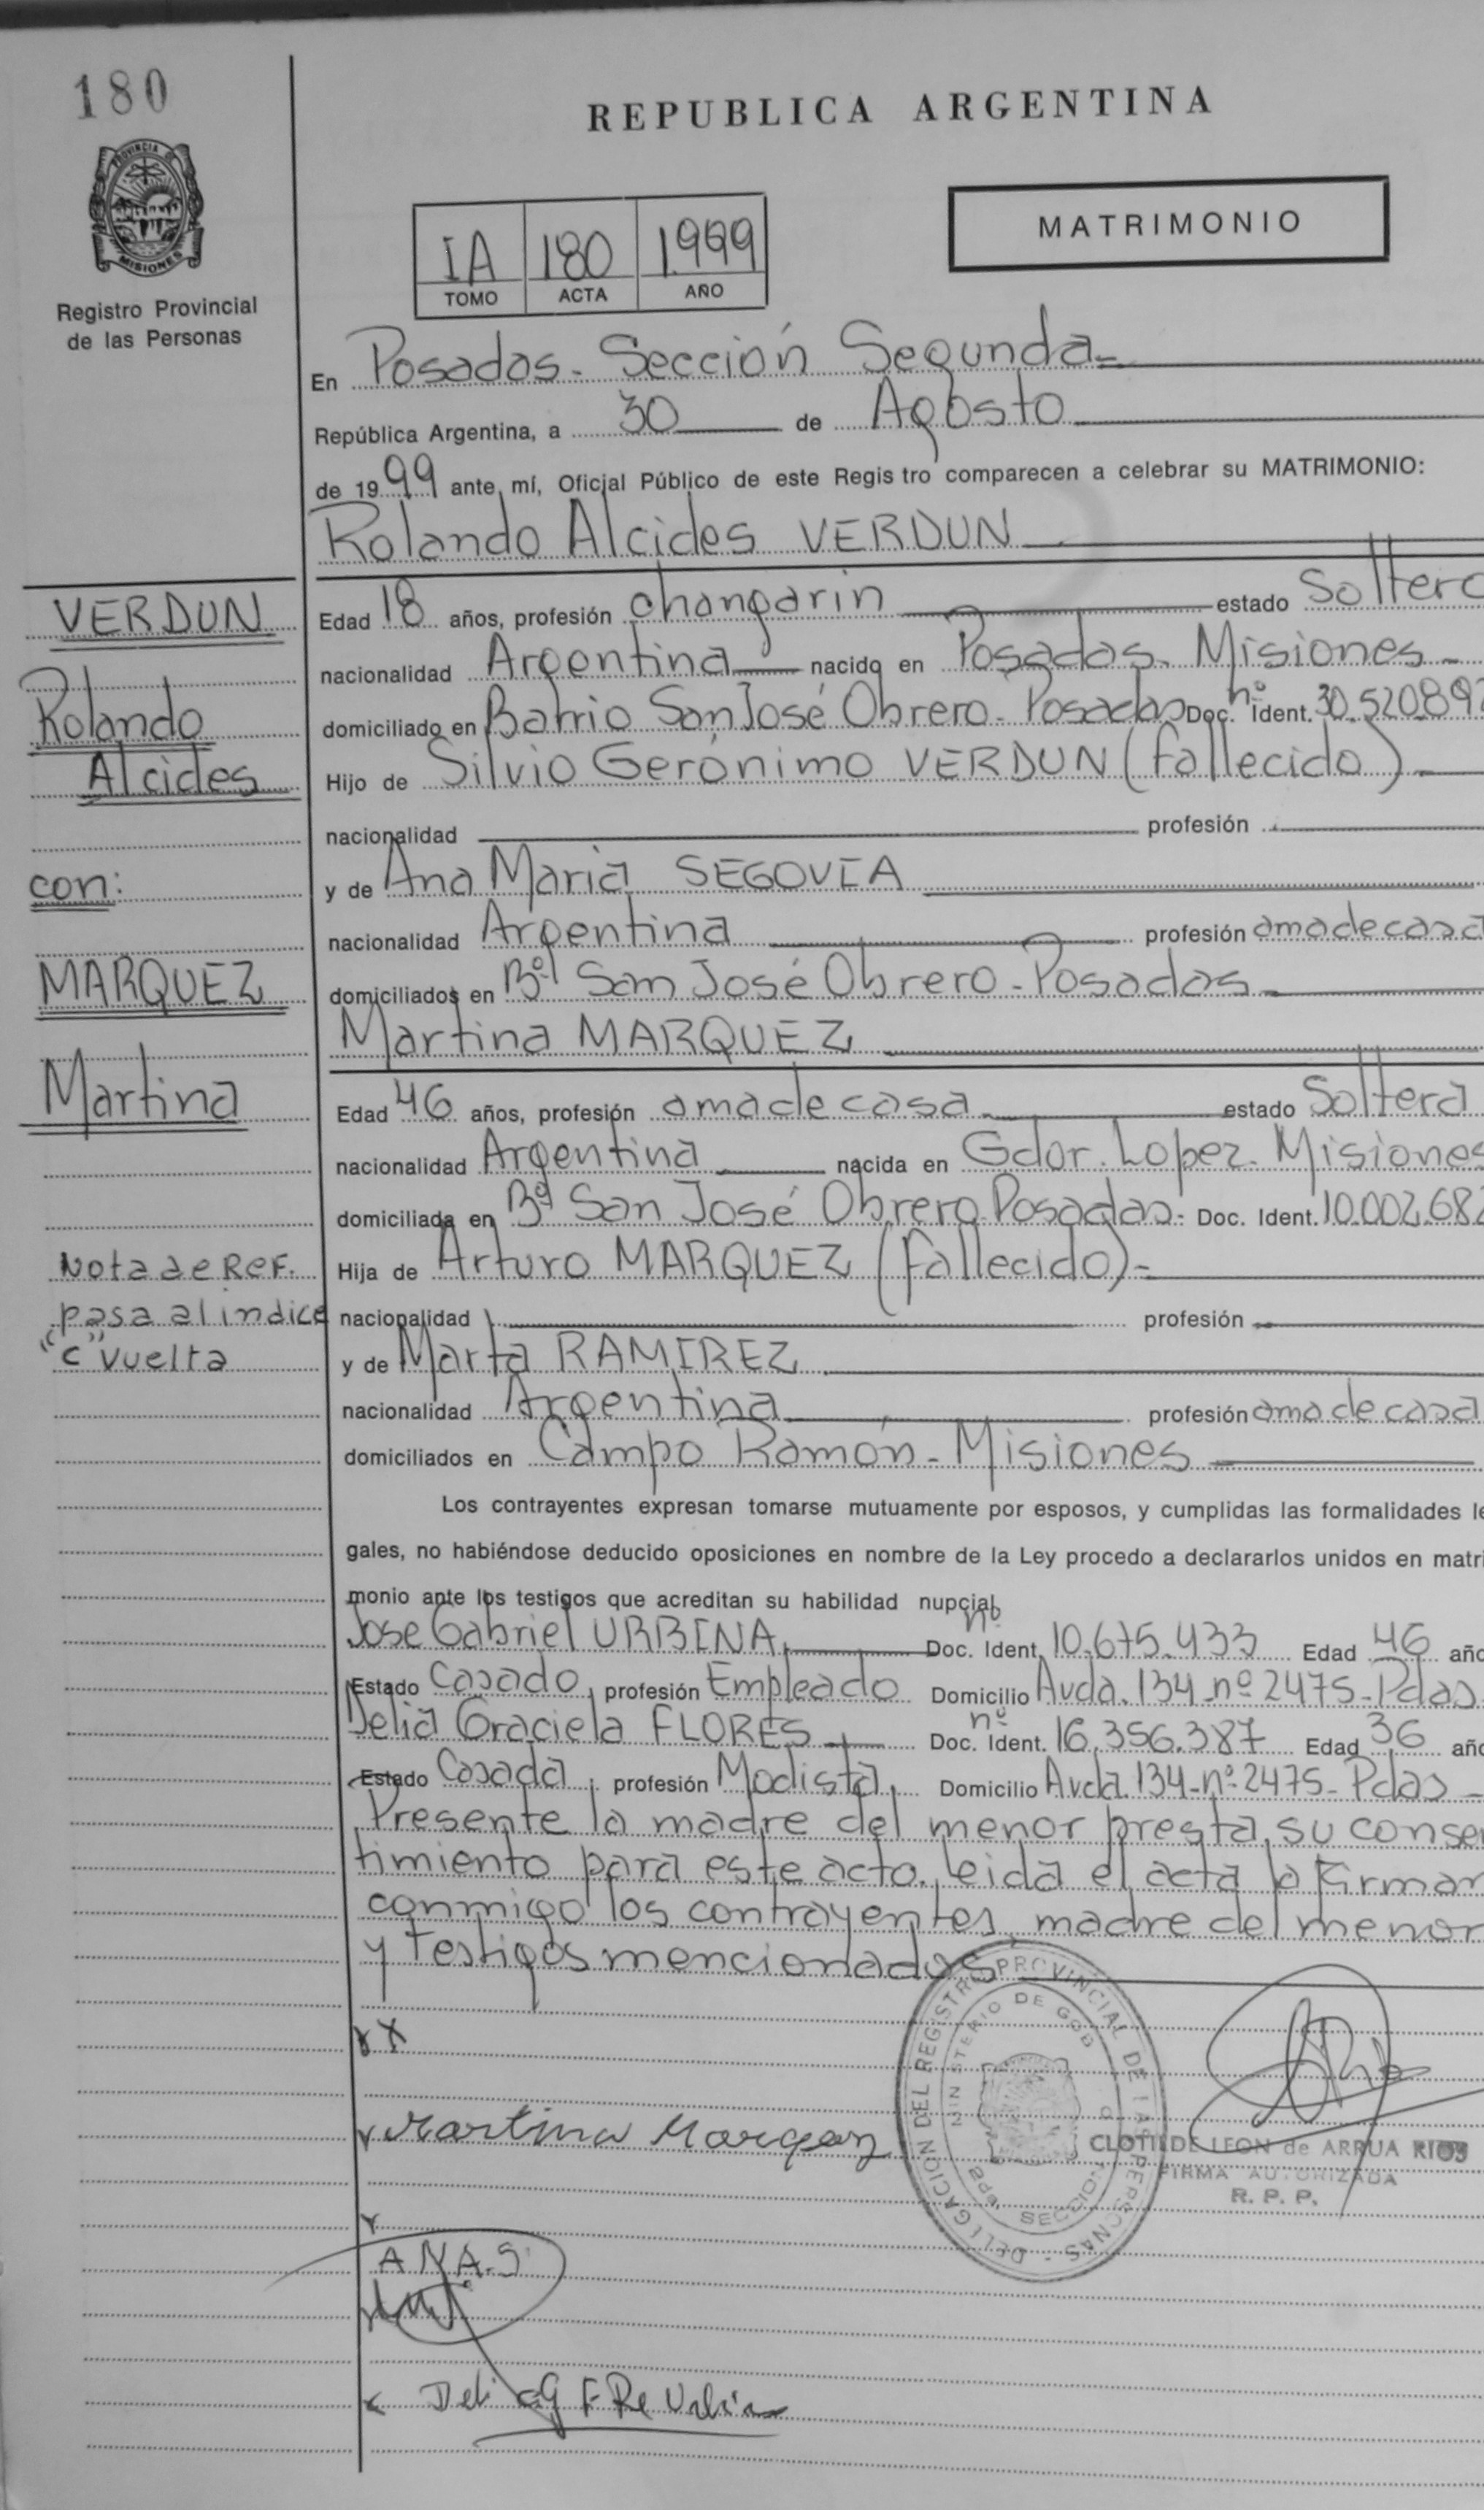 180
REPUBLICA ARGENTINA
PROVINCIA DE
MISIONES
Registro Provincial
de las Personas
IA 180 1.999
TOMO ACTA AÑO
MATRIMONIO
En Posadas. Sección Segunda.=
República Argentina, a 30 de Agosto
de 1999 ante mí, Oficial Público de este Registro comparecen a celebrar su MATRIMONIO:
Rolando Alcides VERDUN
Edad 18 años, profesión changarin estado Soltero
nacionalidad Argentina nacido en Posadas. Misiones.-
domiciliado en Barrio San José Obrero. Posadas Doc. nº Ident. 30.520.892
Hijo de Silvio Gerónimo VERDUN (fallecido).-
nacionalidad profesión
y de Ana Maria SEGOVIA
nacionalidad Argentina profesión ama de casa
domiciliados en Bº San José Obrero - Posadas.
Martina MARQUEZ
Edad 46 años, profesión ama de casa. estado Soltera
nacionalidad Argentina nacida en Gdor. Lopez. Misiones
domiciliada en Bº San José Obrero. Posadas. Doc. Ident. 10.002.682
Hija de Arturo MARQUEZ (fallecido).-
nacionalidad profesión
y de Marta RAMIREZ
nacionalidad Argentina profesión ama de casa
domiciliados en Campo Ramón - Misiones
VERDUN
Rolando
Alcides
con:
MARQUEZ
Martina
Nota de Ref.
pasa al indice
"C" vuelta
Los contrayentes expresan tomarse mutuamente por esposos, y cumplidas las formalidades le
gales, no habiéndose deducido oposiciones en nombre de la Ley procedo a declararlos unidos en matri
monio ante los testigos que acreditan su habilidad nupcial
Jose Gabriel URBINA. Doc. Ident. nº 10.675.433 Edad 46 año
Estado Casado, profesión Empleado Domicilio Avda. 134 nº 2475 - Pdas
Delia Graciela FLORES Doc. Ident. nº 16.356.387 Edad 36 año
Estado Casada, profesión Modista, Domicilio Avda. 134 - nº 2475 - Pdas -
Presente la madre del menor presta su conse
timiento para este acto. leida el acta la firman
conmigo los contrayentes, madre del menor
y testigos mencionados
Martina Marquez
DELEGACION DEL REGISTRO PROVINCIAL DE LAS PERSONAS
MINISTERIO DE GOB
SECCION
CLOTILDE LEON de ARRUA RIOS
FIRMA AUTORIZADA
R. P. P.
ANA.S